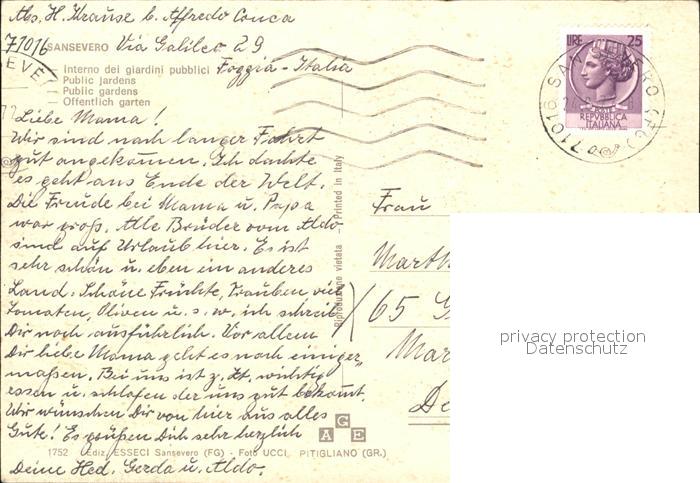 Abs. H. Krause b. Affredo Conca
71016 SANSEVERO Via Galileo 29
— Interno dei giardini pubblici Foggia - Italia
— Public Jardens
— Public gardens
— Offentlich garten
Liebe Mama!
Wir sind nach langer Fahrt
gut angekommen. Ich dachte
es geht ans Ende der Welt.
Die Freude bei Mama u. Papa
war groß. Alle Brüder vom Aldo
sind auf Urlaub hier. Es ist
sehr schön u. eben ein anderes
Land. Schöne Früchte, Trauben viel
Tomaten, Oliven u. s. w. ich schreib
Dir noch ausführlich. Vor allem
Dir liebe Mama geht es noch einiger„
maßen. Bei uns ist z. Zt. wichtig
essen u. schlafen der uns gut bekommt.
Wir wünschen Dir von hier aus alles
Gute! Es grüßen Dich sehr herzlich
1752 Ediz. ESSECI Sansevero (FG) - Foto UCCI, PITIGLIANO (GR.)
Deine Hed. Gerda u. Aldo.
Riproduzione vietata — Printed in Italy
AGE
LIRE 25
REPVBBLICA
ITALIANA
71016 SAN
Frau
Marth
65
Mar
De
privacy protection
Datenschutz